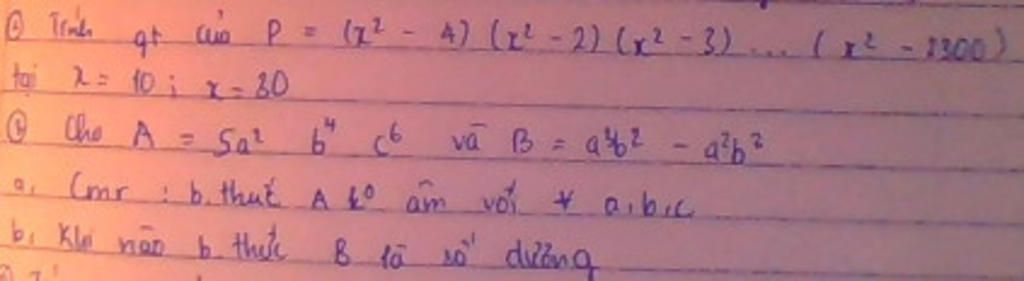 Tính gt của P = (x² - 4) (x² - 2) (x² - 3) ... ( x² - 1300)
tại x = 10 ; x = 30
Cho A = 5a² b⁴ c⁶ và B = a⁴b² - a²b²
a, Cmr : b.thức A k⁰ âm với ∀ a,b,c
b, Khi nào b.thức B là số dương